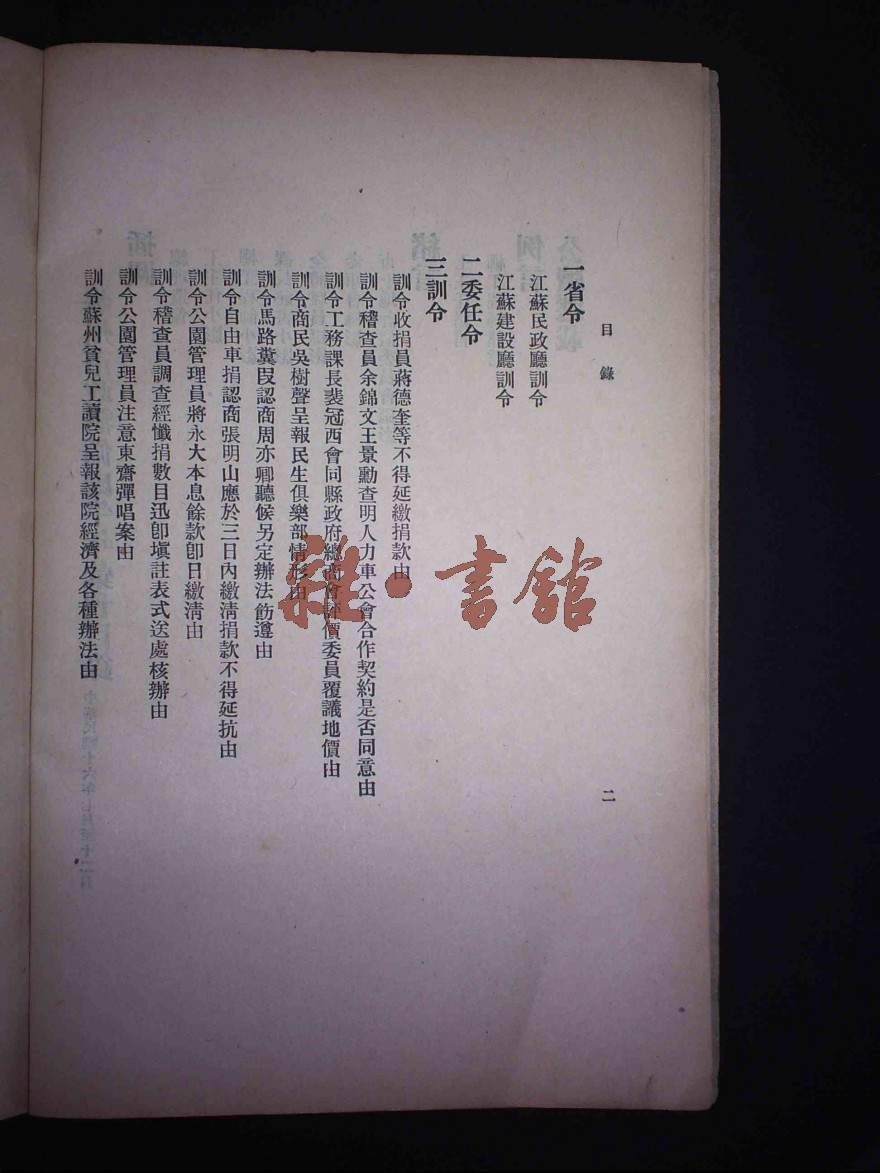 目錄
二
一省令
江蘇民政廳訓令
江蘇建設廳訓令
二委任令
三訓令
訓令收捐員蔣德奎等不得延繳捐款由
訓令稽查員余錦文王景勳查明人力車公會合作契約是否同意由
訓令工務課長裴冠西會同縣政府總商會評價委員覆議地價由
訓令商民吳樹聲呈報民生俱樂部情形由
訓令馬路糞段認商周亦卿聽候另定辦法飭遵由
訓令自由車捐認商張明山應於三日內繳淸捐款不得延抗由
訓令公園管理員將永大本息餘款卽日繳淸由
訓令稽查員調查經懺捐數目迅卽塡註表式送處核辦由
訓令公園管理員注意東齋彈唱案由
訓令蘇州貧兒工讀院呈報該院經濟及各種辦法由
雜·書舘